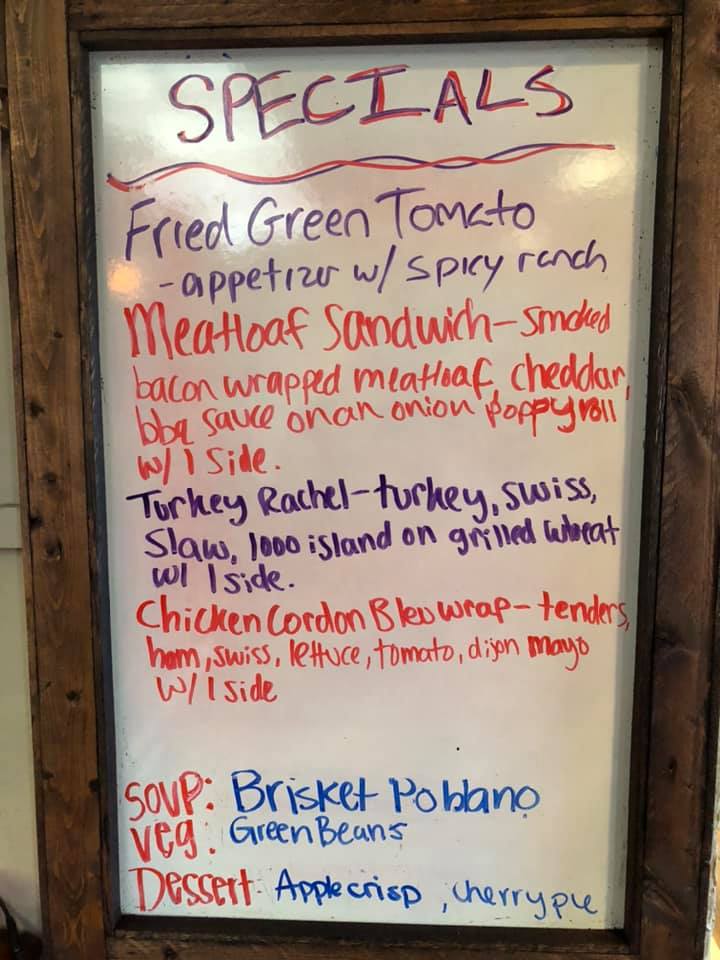 SPECIALS
Fried Green Tomato
-appetizer w/ spicy ranch
Meatloaf Sandwich-smoked
bacon wrapped meatloaf, cheddar,
bbq sauce on an onion poppy roll
w/ 1 side.
Turkey Rachel-turkey, swiss,
slaw, 1000 island on grilled wheat
w/ 1 side.
Chicken Cordon Bleu wrap-tenders,
ham, swiss, lettuce, tomato, dijon mayo
w/ 1 side
soup: Brisket Poblano
veg: Green Beans
Dessert- Apple crisp, cherry pie